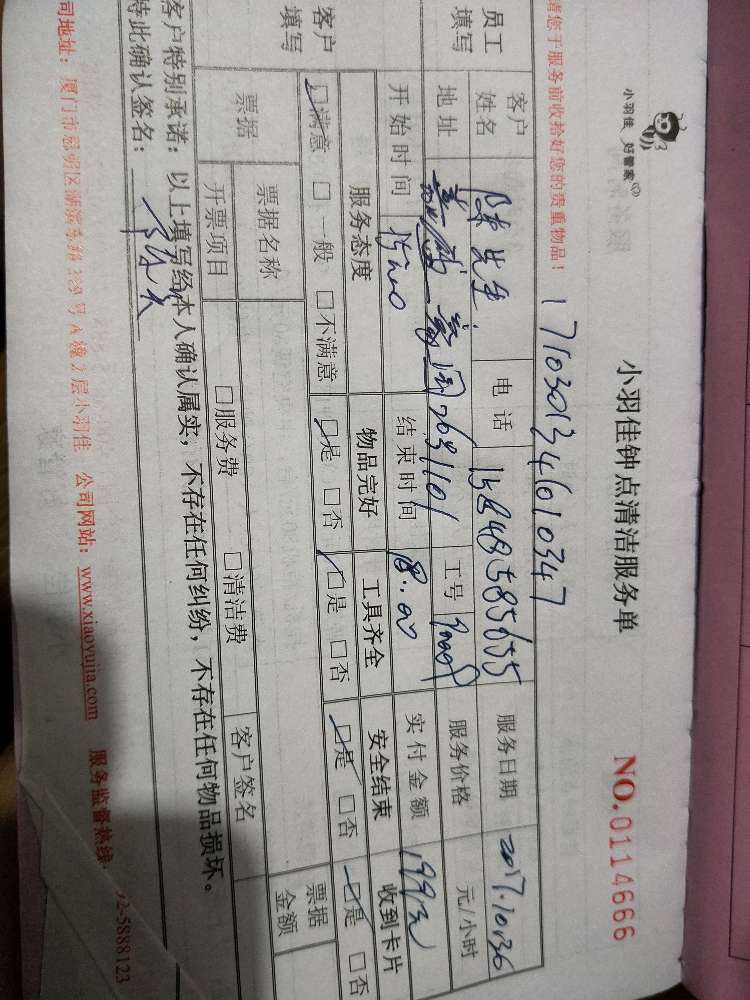 小羽佳 好管家
小羽佳钟点清洁服务单
NO.0114666
请您于服务前收拾好您的贵重物品！
17103013461010347
员工填写
客户姓名 陈先生 电话 15848585655 服务日期 2017.10.30
地址 703 1101 工号 服务价格 元/小时
开始时间 15:00 结束时间 18:00 实付金额 199元
客户填写
服务态度 物品完好 工具齐全 安全结束 收到卡片
☑满意 □一般 □不满意 ☑是 □否 ☑是 □否 ☑是 □否 ☑是 □否
票据
票据名称 票据金额
开票项目 □服务费 □清洁费 客户签名
客户特别承诺：以上填写经本人确认属实，不存在任何纠纷，不存在任何物品损坏。
特此确认签名：
司地址：厦门市思明区湖滨东路 号A幢2层小羽佳 公司网站：www.xiaoyujia.com 服务监督热线： 2-5888123